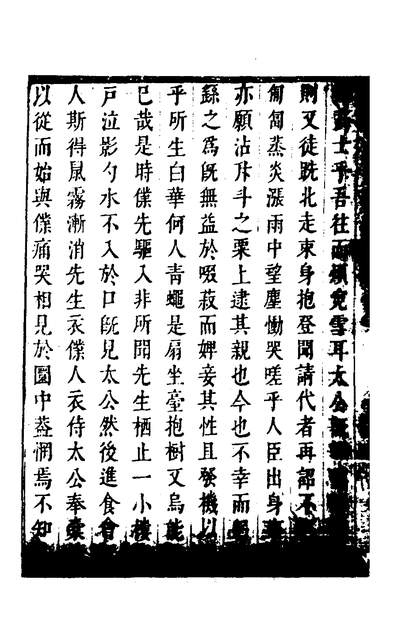 士乎吾往而鎮寃雪耳太公
則又徒跣北走束身抱登聞請代者再詔不
匍匐蒸炎漲雨中望塵慟哭嗟乎人臣出身
亦願沾斥斗之粟上逮其親也今也不幸而
繇之爲旣無益於啜菽而婢妾其性且發機以
乎所生白華何人青蠅是扇坐臺抱樹又烏能
已哉是時僕先驅入非所聞先生栖止一小樓
戸泣影勺水不入於口旣見太公然後進食會
人斯得鼠霧漸消先生衣僕人衣侍太公奉槖
以從而始與僕痛哭相見於圜中葢惘焉不知